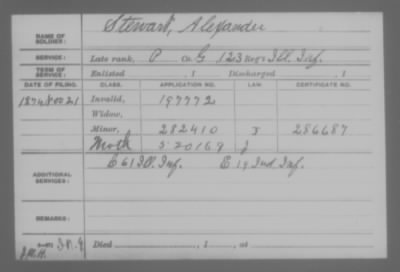 NAME OF SOLDIER: Stewart, Alexander
SERVICE: Late rank, P Co. G 123 Reg't Ill. Inf.
TERM OF SERVICE: Enlisted , 1 Discharged , 1
DATE OF FILING. CLASS. APPLICATION NO. LAW. CERTIFICATE NO.
1874 Nov 21 Invalid, 197772
Widow,
Minor, 282410 J 286687
Moth 520169 J
ADDITIONAL SERVICES: E 61 Ill. Inf. E 19 Ind. Inf.
REMARKS:
Died , 1 , at